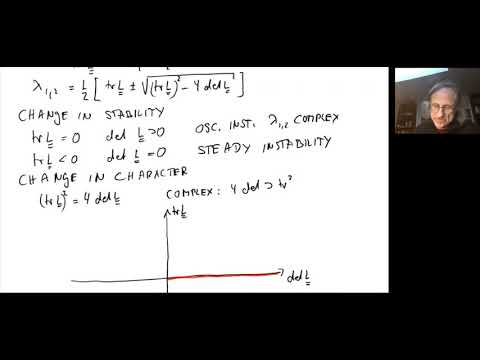 λ₁,₂ = 1/2 [ tr L ± √((tr L)² − 4 det L) ]
CHANGE IN STABILITY
tr L = 0 det L > 0 OSC. INST. λ₁,₂ COMPLEX
tr L < 0 det L = 0 STEADY INSTABILITY
CHANGE IN CHARACTER
(tr L)² = 4 det L COMPLEX: 4 det > tr²
tr L
det L